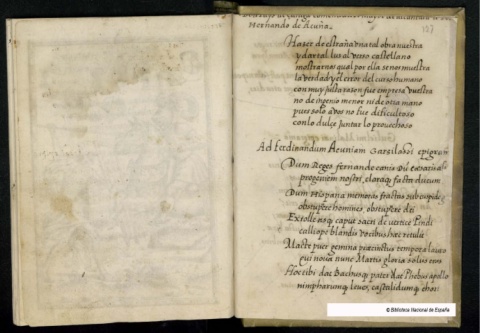 Hernando de Acuña.
127
Haser de estraña una tal obra nuestra
y dar tal lus al verso castellano
mostrarnos qual por ella se nos muestra
la verdad y el error del curso humano
con muy justa rason fue impresa vuestra
no de ingenio menor ni de otra mano
pues solo a vos no fue dificultoso
con lo dulçe juntar lo provechoso
Ad Ferdinandum Acuniam
Dum Reges fernande canis Dū
progeniem nostri, claraq; facta ducum
Dum Hispana memoras fractas sub cuspide
obstupere homines obstupere dei
Extollensq; caput sacri de vertice Pindi
calliope blandis vocibus hæc retulit
Macte puer gemina præcinctus tempora lauro
qui nova nunc Martis gloria solus eras
Hæc tibi dat Bachusq; pater dat Phebus apollo
nimpharumq; leves, castalidumq; chori
© Biblioteca Nacional de España